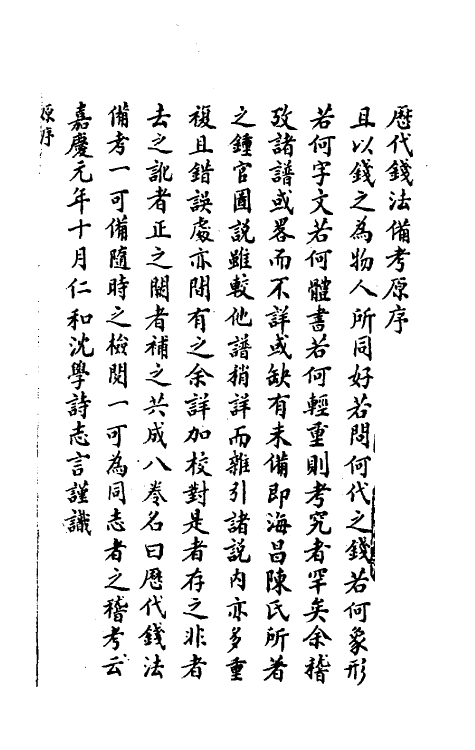 歷代錢法備考原序
且以錢之為物人所同好若問何代之錢若何象形
若何字文若何體書若何輕重則考究者罕矣余稽
攷諸譜或畧而不詳或缺有未備即海昌陳氏所著
之鍾官圖說雖較他譜稍詳而雜引諸說內亦多重
複且錯誤處亦間有之余詳加校對是者存之非者
去之訛者正之闕者補之共成八卷名曰歷代錢法
備考一可備隨時之檢閱一可為同志者之稽考云
嘉慶元年十月仁和沈學詩志言謹識
原序